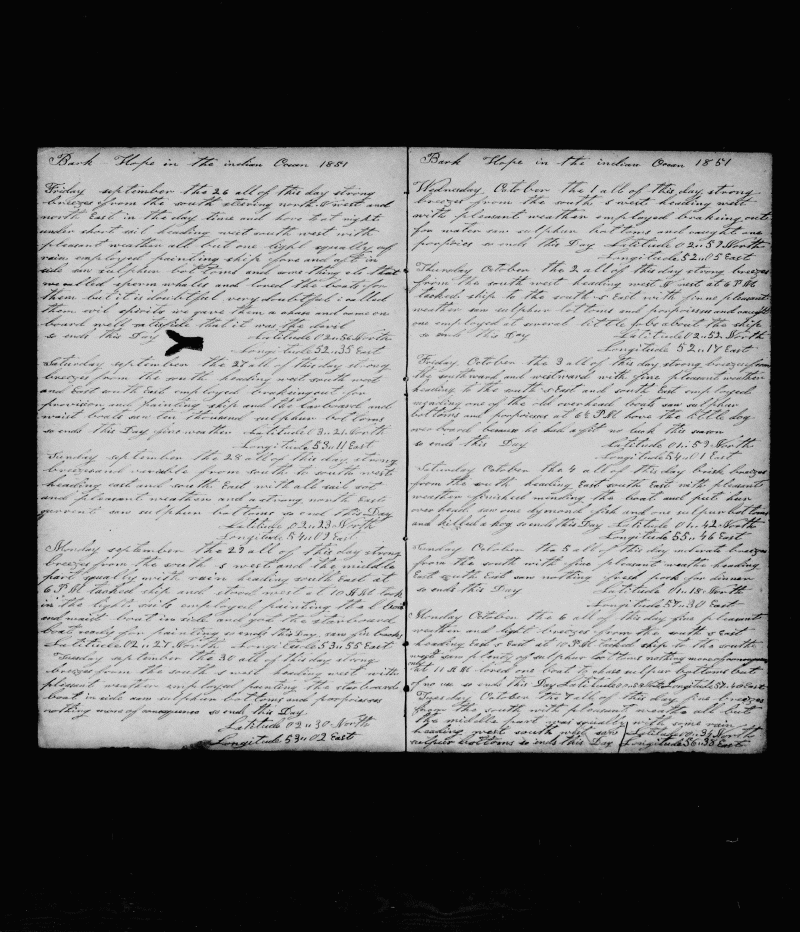 Bark Hope in the indian Ocean 1851
Friday september the 26 all of this day strong
breezes from the south stearing north & west and
north East in the day time and hove to at night
under short sail heading west south west with
pleasant weather all but one light squally of
rain employed painting ship fore and aft in
side saw sulphur bottoms and some thing els that
we called sperm whales and lowed the boats for
them but it is doubtful very doubtful i called
them evil spirits we gave them a chase and came on
board well satisfide that it was the devil
so ends this Day Latitude 02"56 North
Longitude 52"35 East
Saturday september the 27 all of this day strong
breezes from the south heading west south west
and East south East employed breaking out for
provision and painting ship and the larboard and
waist boats saw ten thousand sulphur bottoms
so ends this Day fine weather Latitude 03"21 North
Longitude 53"11 East
Sunday september the 28 all of this day strong
breezes and variable from south to south west
heading east and south East with all sail sot
and pleasant weather and a strong north East
current saw sulphur bottoms so end this Day
Latitude 02"23 North
Longitude 54"09 East
Monday september the 29 all of this day strong
breezes from the south s west and the middle
part squally with rain heading south East at
6 P.M tacked ship and stood west at 10 A.M took
in the light sails employed painting the
and waist boat in side and got the starboard
boat ready for painting so ends this Day saw fin backs
Latitude 02"27 North Longitude 53"55 East
Tuesday september the 30 all of this day strong
breezes from the south s west heading west with
pleasant weather employed painting the starboard
boat in side saw sulphur bottoms and porpoises
nothing more of consequence so ends this Day
Latitude 02"30 North
Longitude 53"02 East
Bark Hope in the indian Ocean 1851
Wednesday October the 1 all of this day strong
breezes from the south s west heading west
with pleasant weather employed breaking out
for water saw sulphur bottoms and caught one
porpoise so ends this Day Latitude 02"59 North
Longitude 52"05 East
Thursday October the 2 all of this day strong breezes
from the south west heading west N west at 6 P.M
tacked ship to the south s East with fine pleasant
weather saw sulphur bottoms and porpoises and caught
one employed at several little jobs about the ship
so ends this Day Latitude 02"52 North
Longitude 52"17 East
Friday October the 3 all of this day strong breezes from
the southward and westward with fine pleasant weather
heading to the south s East and south East employed
repairing one of the old overhead boats saw sulphur
bottoms and porpoises at 6½ P.M hove the little dog
overboard because he had a fit no luck this season
so ends this Day Latitude 01"59 North
Longitude 54"01 East
Saturday October the 4 all of this day brisk breezes
from the south heading East south East with pleasants
weather finished mending the boat and put her
over head saw one dymond fish and one sulpur bottom
and killed a hog so ends this Day Latitude 01"42 North
Longitude 55"46 East
Sunday October the 5 all of this day moderate breezes
from the south with fine pleasant weathe heading
East south East saw nothing fresh pork for dinner
so ends this Day Latitude 01"18 North
Longitude 57"30 East
Monday October the 6 all of this day fine pleasants
weather and light breezes from the south s East
heading East s East at 10 P.M tacked ship to the south
west saw plenty of sulphur bottoms nothing more of consequence
at 11 A.M lowed one boat to chase sulpur bottoms but
of no use so ends this Day Latitude Longitude 57"40 East
Tuesday October the 7 all of this day fine breezes
from the south with pleasant weather all but
the middle part was squaly with some rain
heading west south west saw Latitude 00"34 North
sulpur bottoms so ends this Day Longitude 56"35 East